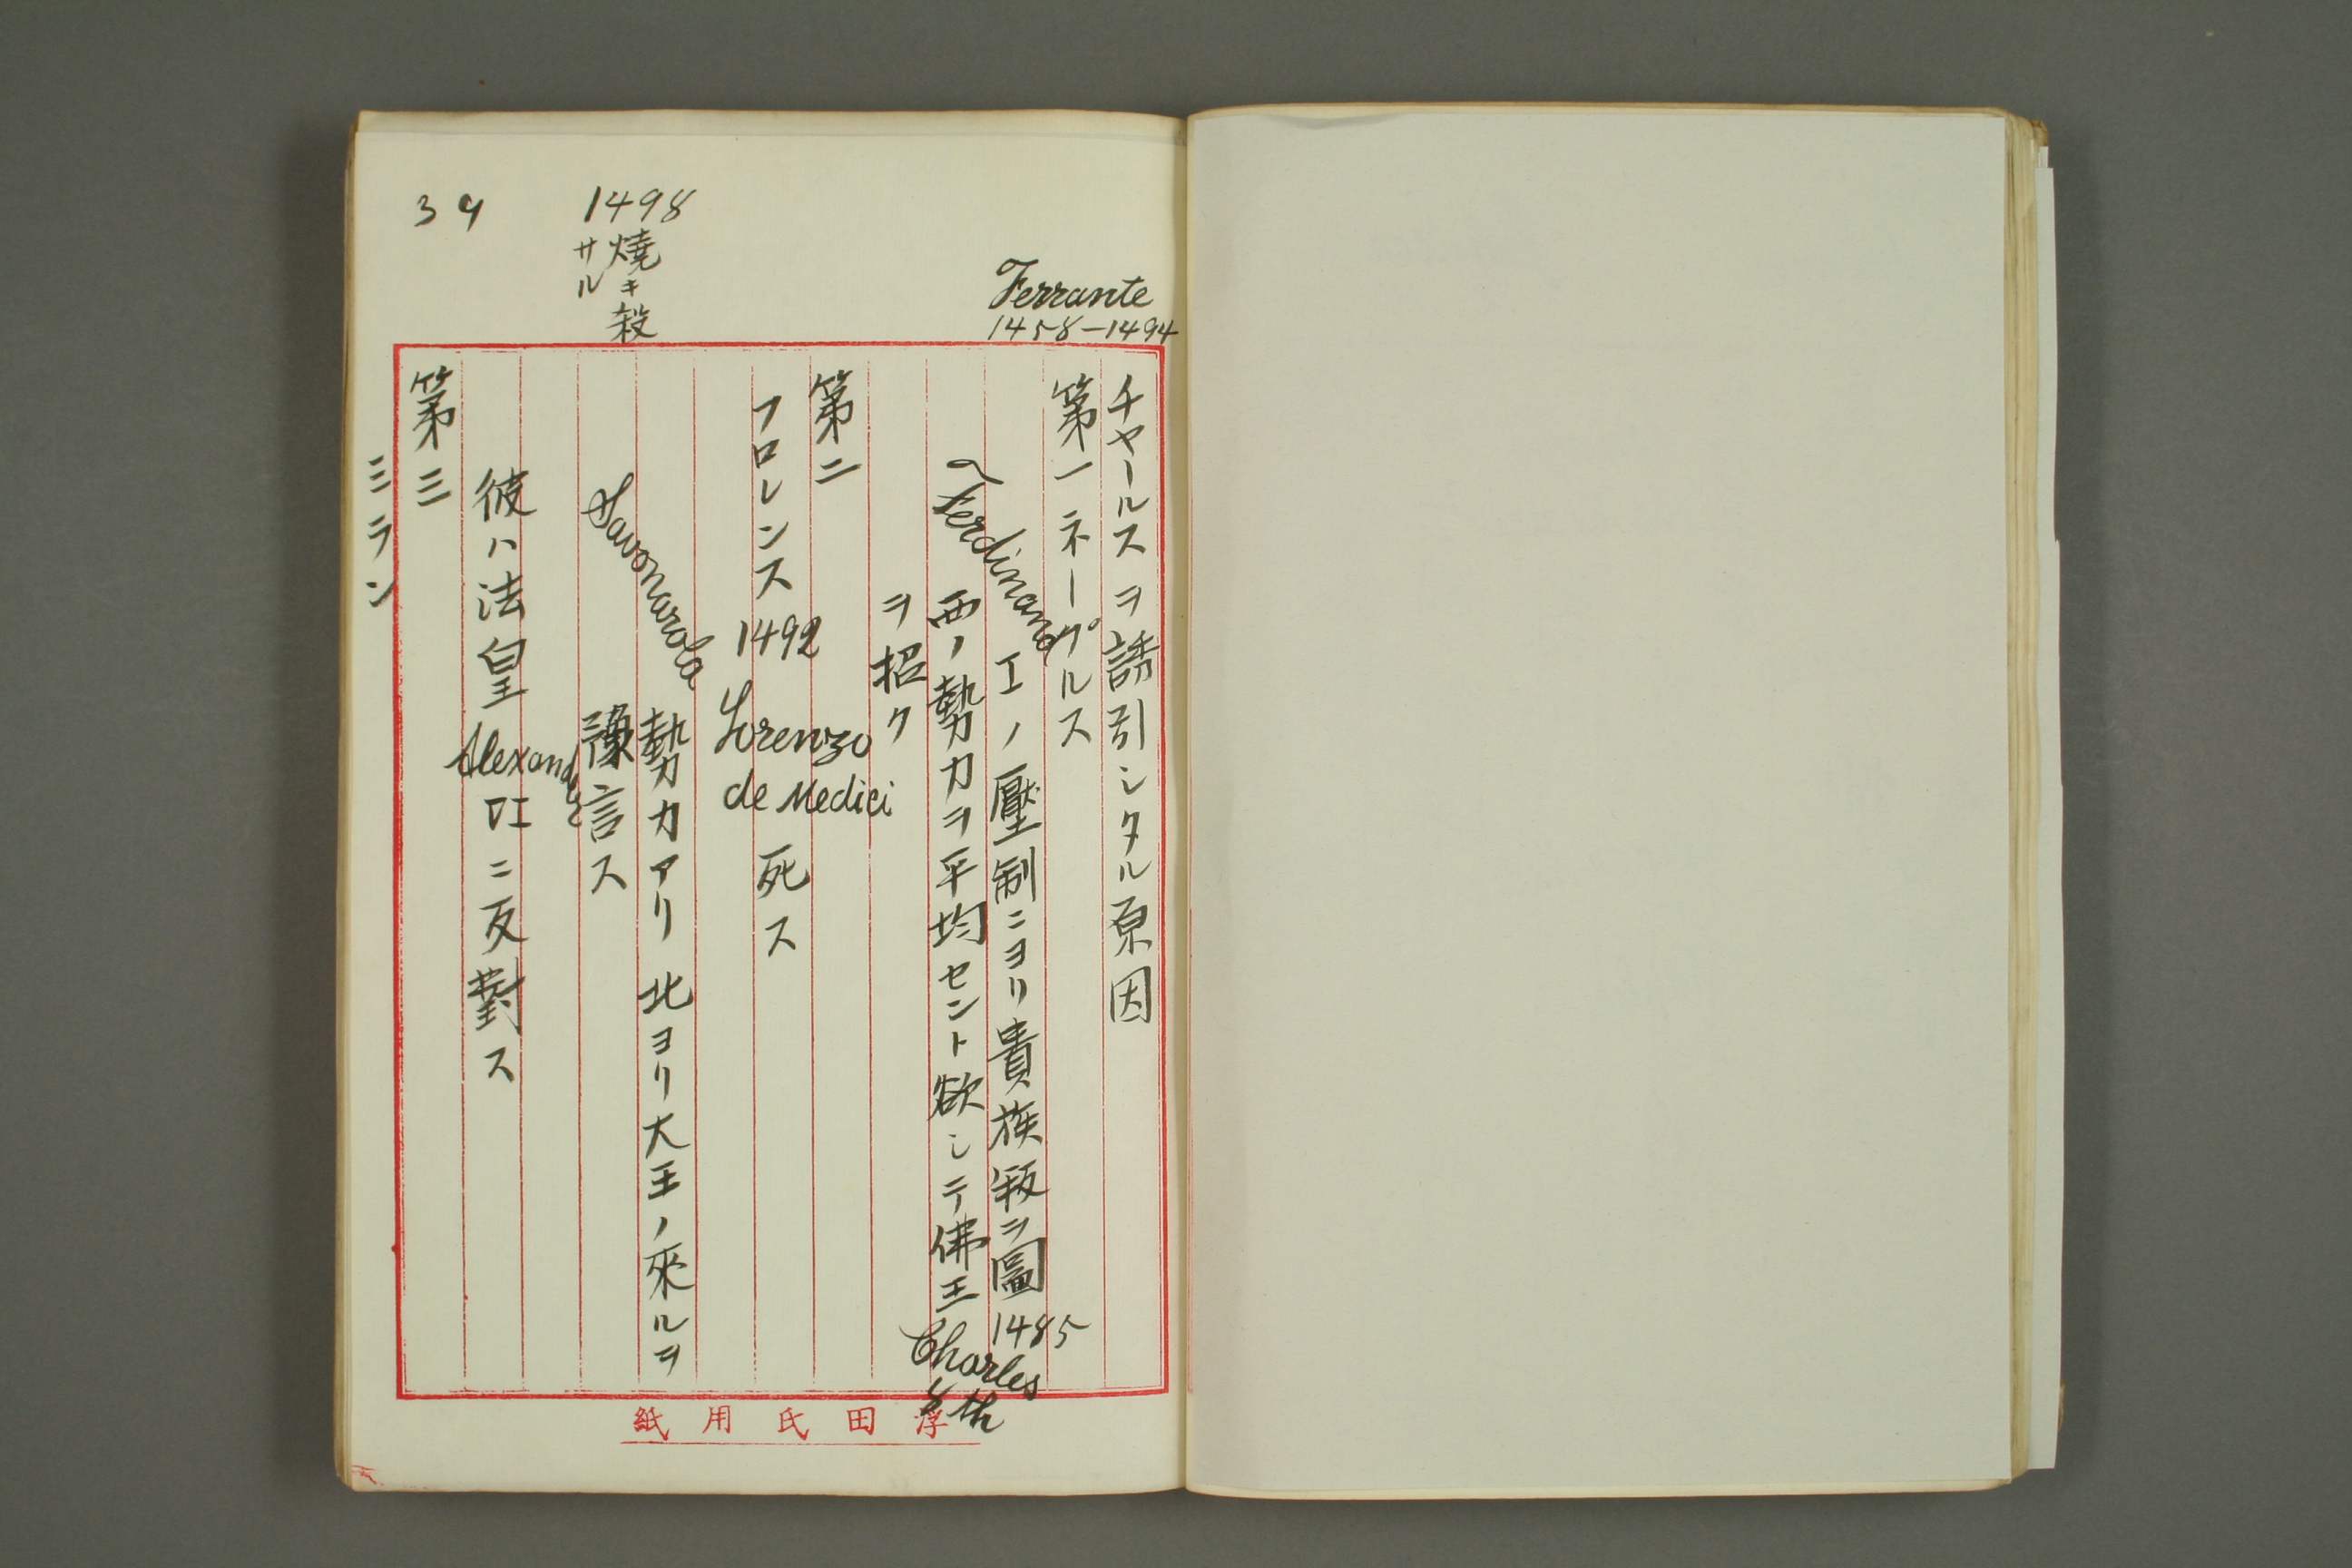 Ferrante
1458-1494
チャールスヲ誘引シタル原因
第一 ネープルス
Ferdinand Iノ壓制ニヨリ貴族叛ヲ圖 1485
西ノ勢力ヲ平均セント欲シテ佛王 Charles 8th
ヲ招ク
第二
フロレンス 1492 Lorenzo de Medici 死ス
1498
燒キ殺
サル
Savonarola 勢力アリ 北ヨリ大王ノ來ルヲ
豫言ス
彼ハ法皇 Alexander VI ニ反對ス
39
第三
ミラン
浮田氏用紙